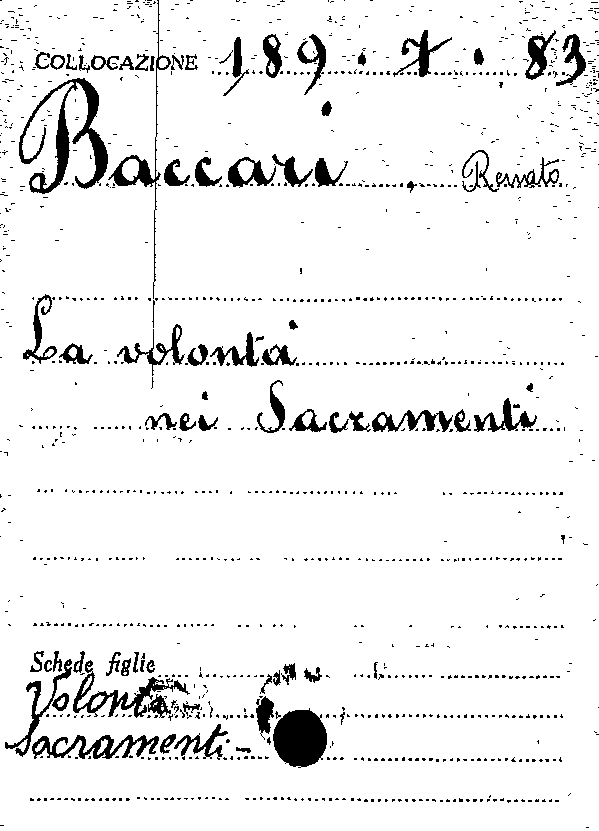 COLLOCAZIONE 189 · 7 · 83
Baccari, Renato
La volontà
nei Sacramenti
Schede figlie
Volontà
Sacramenti -